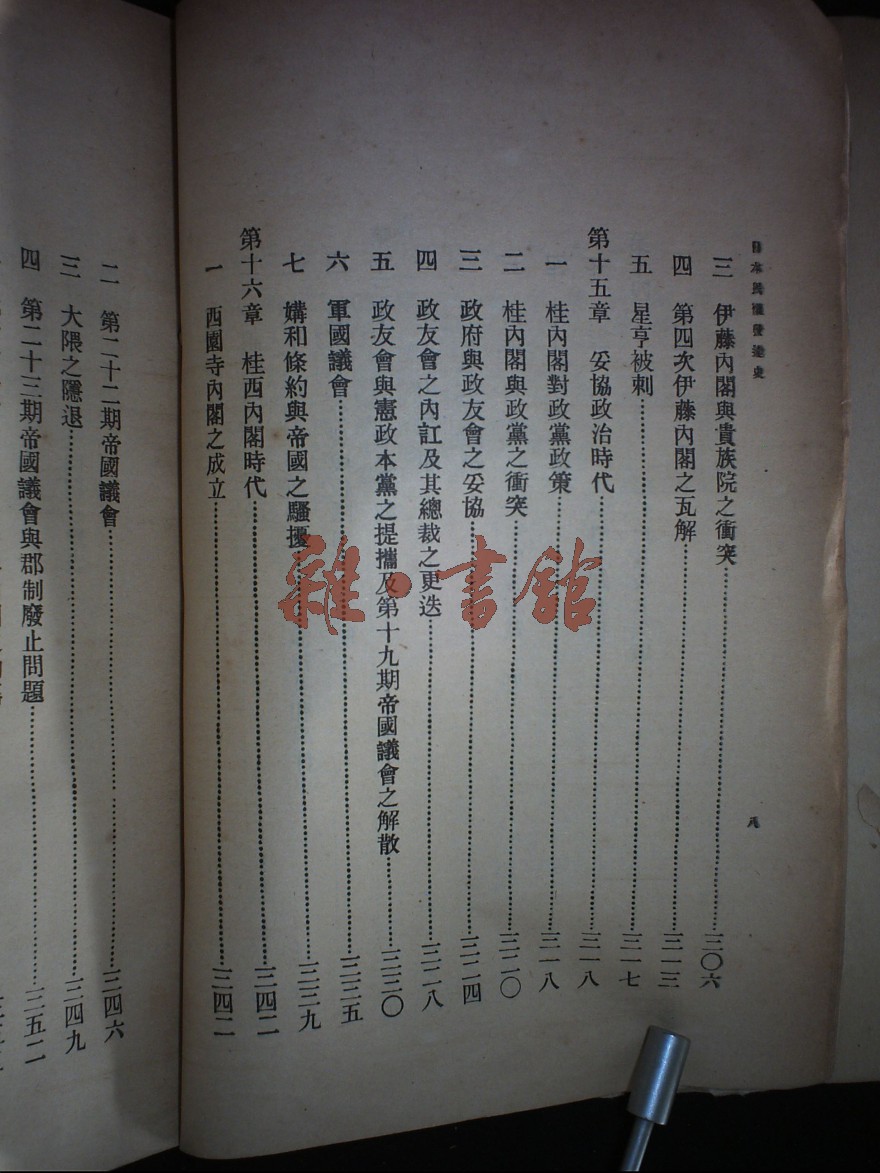 日本民權發達史
三 伊藤內閣與貴族院之衝突……三〇六
四 第四次伊藤內閣之瓦解……三一三
五 星亨被刺……三一七
第十五章 妥協政治時代……三一八
一 桂內閣對政黨政策……三一八
二 桂內閣與政黨之衝突……三二〇
三 政府與政友會之妥協……三二四
四 政友會之內訌及其總裁之更迭……三二八
五 政友會與憲政本黨之提攜及第十九期帝國議會之解散……三三〇
六 軍國議會……三三五
七 媾和條約與帝國之騷擾……三三九
第十六章 桂西內閣時代……三四二
一 西園寺內閣之成立……三四二
八
二 第二十二期帝國議會……三四六
三 大隈之隱退……三四九
四 第二十三期帝國議會與郡制廢止問題……三五二
雜·書館